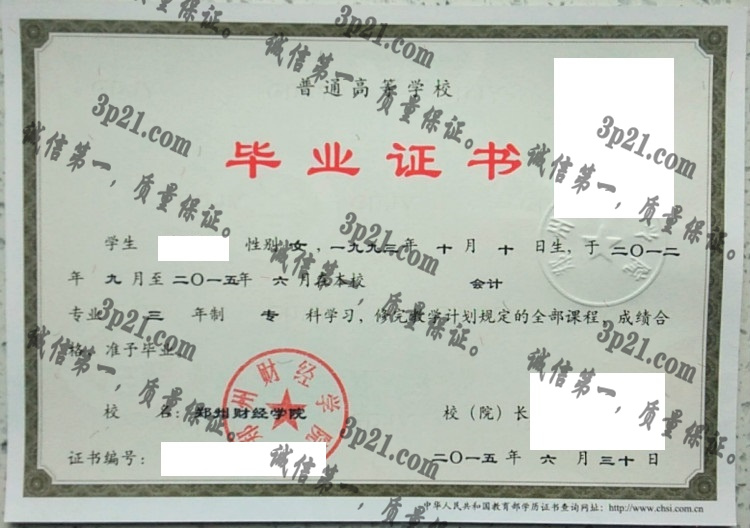 普通高等学校
毕业证书
学生 性别 女，一九九三年 十月 十 日生，于 二〇一二
年 九 月至 二〇一五年 六 月在本校 会计
专业 三 年制 专 科学习，修完教学计划规定的全部课程，成绩合
格，准予毕业。
郑州财经学院
校 名：郑州财经学院
校（院）长
证书编号：
二〇一五 年 六 月 三十 日
中华人民共和国教育部学历证书查询网址：http://www.chsi.com.cn
3p21.com
诚信第一，质量保证。
3p21.com
诚信第一，质量保证。
3p21.com
诚信第一，质量保证。
3p21.com
诚信第一，质量保证。
3p21.com
诚信第一，质量保证。
3p21.com
诚信第一，质量保证。
3p21.com
诚信第一，质量保证。
3p21.com
诚信第一，质量保证。